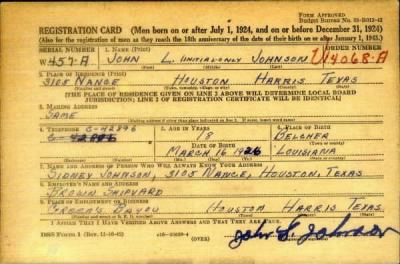 FORM APPROVED
Budget Bureau No. 33-R012-42
REGISTRATION CARD (Men born on or after July 1, 1924, and on or before December 31, 1924)
(Also for the registration of men as they reach the 18th anniversary of the date of their birth on or after January 1, 1925.)
SERIAL NUMBER 1. NAME (Print) ORDER NUMBER
W 457-A JOHN L. (INITIAL-ONLY) JOHNSON 14068-A
(First) (Middle) (Last)
2. PLACE OF RESIDENCE (Print)
3105 NANCE HOUSTON HARRIS TEXAS
(Number and street) (Town, township, village, or city) (County) (State)
[THE PLACE OF RESIDENCE GIVEN ON LINE 2 ABOVE WILL DETERMINE LOCAL BOARD
JURISDICTION; LINE 2 OF REGISTRATION CERTIFICATE WILL BE IDENTICAL]
3. MAILING ADDRESS
SAME
[Mailing address if other than place indicated on line 2. If same, insert word same]
4. TELEPHONE 5. AGE IN YEARS 6. PLACE OF BIRTH
C-42896 18 BELCHER
DATE OF BIRTH
MARCH 16 1926 LOUISIANA
(Mo.) (Day) (Yr.)
7. NAME AND ADDRESS OF PERSON WHO WILL ALWAYS KNOW YOUR ADDRESS
SIDNEY JOHNSON, 3105 NANCE, HOUSTON, TEXAS
8. EMPLOYER'S NAME AND ADDRESS
BROWN SHIPYARD
9. PLACE OF EMPLOYMENT OR BUSINESS
GREEN'S BAYOU HOUSTON HARRIS TEXAS
(Number and street or R. F. D. number) (Town) (County) (State)
I AFFIRM THAT I HAVE VERIFIED ABOVE ANSWERS AND THAT THEY ARE TRUE.
DSS FORM 1 (Rev. 11-16-42) (OVER) John L. Johnson